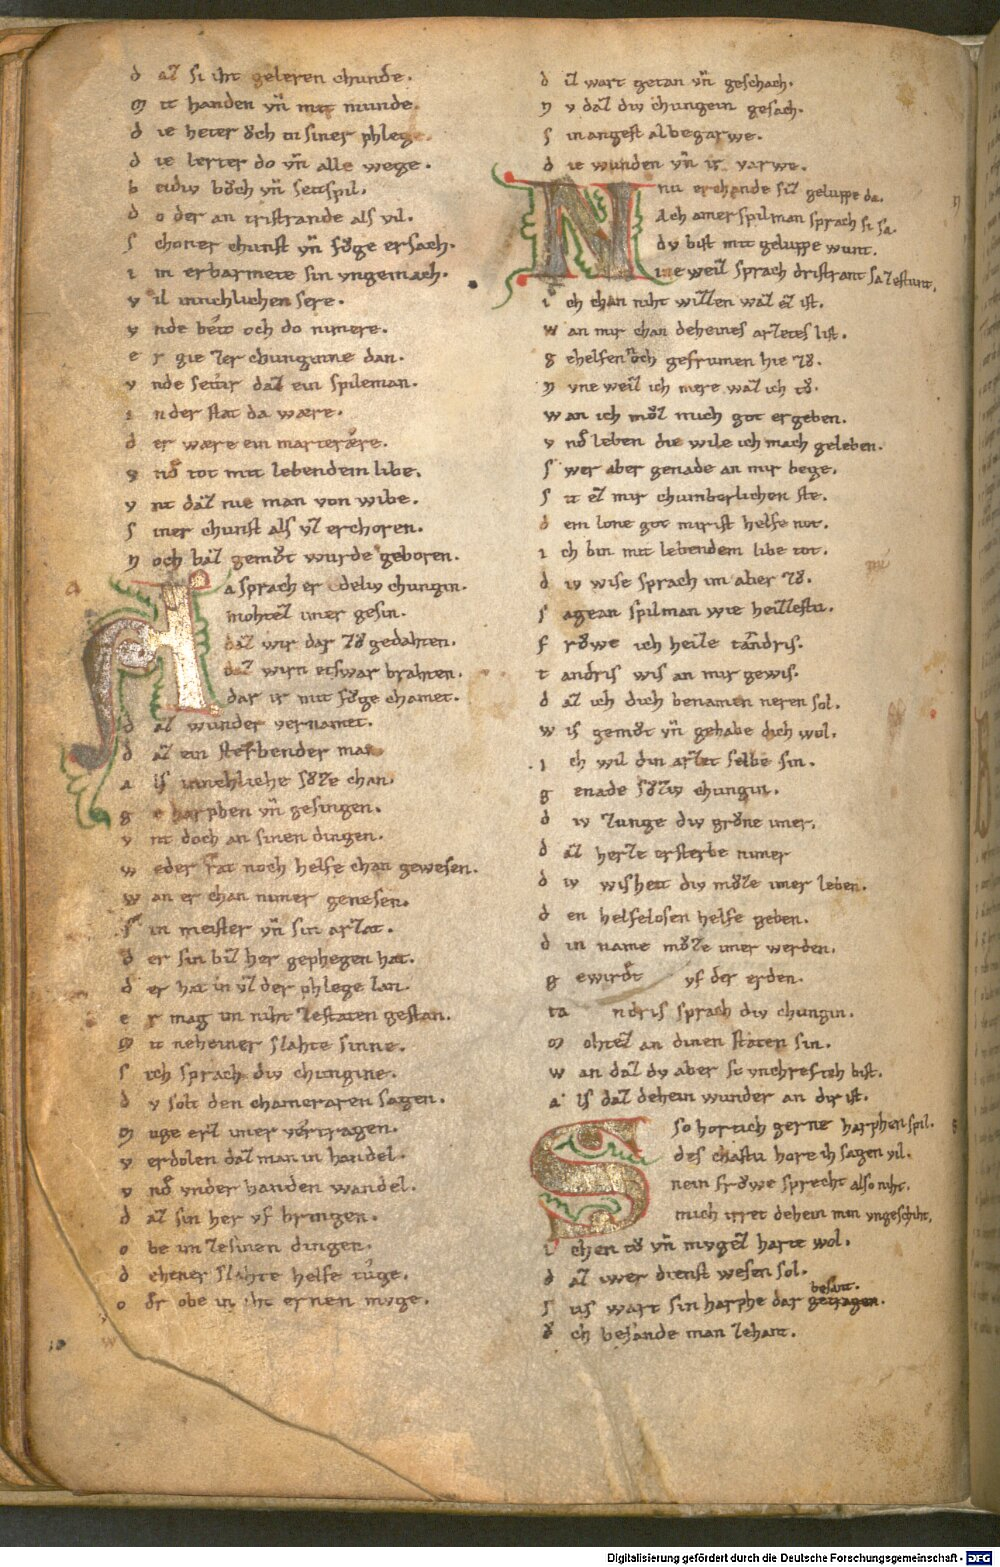 d aƷ si iht geleren chunde.
m it handen vñ mit munde.
d ie heter och in siner phlege
d ie lerter do vñ alle wege.
b eidiv bͦch vñ seitspil.
d o der an tristrande als vil.
s choner chunst vñ fͦge ersach.
i m erbarmete sin vngemach.
v il innichlichen sere.
v nde beîte och do nimere.
e r gie Ʒer chunginne dan.
v nde seitir daƷ ein spileman.
i n der stat da wære.
d er wære ein marterære.
v nͦ tot mit lebendem libe.
v nt daƷ nie man von wibe.
s iner chunst als vƷ erchoren.
n och baƷ gemͦt wurde geboren.
A a sprach er edeliv chungin.
mohteƷ imer gesin.
daƷ wir dar Ʒͦ gedahten.
daƷ wirn etswar brahten.
dar ir mit fͦge chamet.
d aƷ wunder vernamet.
d aƷ ein sterbender man
a ls inniehliche sͦƷe chan
g e harphen vñ gesingen.
v nt doch an sinen dingen.
w eder rat noch helfe chan gewesen.
w an er chan nimer genesen.
s in meister vñ sin arƷat.
d er sin biƷ her gephegen hat.
d er hat in vƷ der phlege lan.
e r mag im niht Ʒestaten gestan.
m it neheiner slahte sinne.
s ich sprach div chungine.
d v solt den chameraren sagen.
m uge erƷ imer vertragen.
v erdolen daƷ man in handel.
v nͦ vnder handen wandel.
d aƷ sin her vf bringen.
o be im Ʒesinen dingen.
d ehener slahte helfe tuge.
o dr obe in iht ernen mvge.
d iƷ wart getan vñ geschach.
n v daƷ div chungein gesach.
s in angest albegarwe.
d ie wunden vñ ir varwe.
N nu erchande siƷ geluppe da.
Ach armer spilman sprach si sa.
dv bist mit geluppe wunt.
ine weiƷ sprach dristrant saƷestunt.
i ch chan niht wiƷƷen waƷ eƷ ist.
w an mir chan deheines arƷetes list.
g ehelfen noch gefrumen hie Ʒͦ.
n vne weiƷ ich mere waƷ ich tͦ.
w an ich mͦƷ mich got ergeben.
v nͦ leben die wile ich mach geleben.
s wer aber genade an mir bege.
s it eƷ mir chumberlichen ste.
d em lone got mirist helfe not.
i ch bin mit lebendem libe tot.
d iv wise sprach im aber Ʒͦ.
s agean spilman wie heiƷƷestu.
f rͦwe ich heiƷe tandris.
t andris wis an mir gewis.
d aƷ ich dich benamen neren sol.
w is gemͦt vñ gehabe dich wol.
i ch wil din arƷet selbe sin.
g enade sͦƷiv chungin.
d iv Ʒunge div grͦne imer.
d aƷ herƷe ersterbe nimer
d iv wisheit div mͦƷe imer leben.
d en helfelosen helfe geben.
d in name mͦƷe imer werden.
g ewirdͦt vf der erden.
ta ndris sprach div chungin.
m ohteƷ an dinen staten sin.
w an daƷ dv aber so vnchrefteh bist.
a ls daƷ dehein wunder an dir ist.
S so hortich gerne harphen spil.
des chastu hore ih sagen vil.
nein frͦwe sprecht also niht.
mich irret dehein min vngeschiht.
i chen tͦ vñ mvgeƷ harte wol.
d aƷ iwer dienst wesen sol.
s us wart sin harphe dar getragen. besant.
ͦ ch besande man Ʒehant.
Digitalisierung gefördert durch die Deutsche Forschungsgemeinschaft - DFG